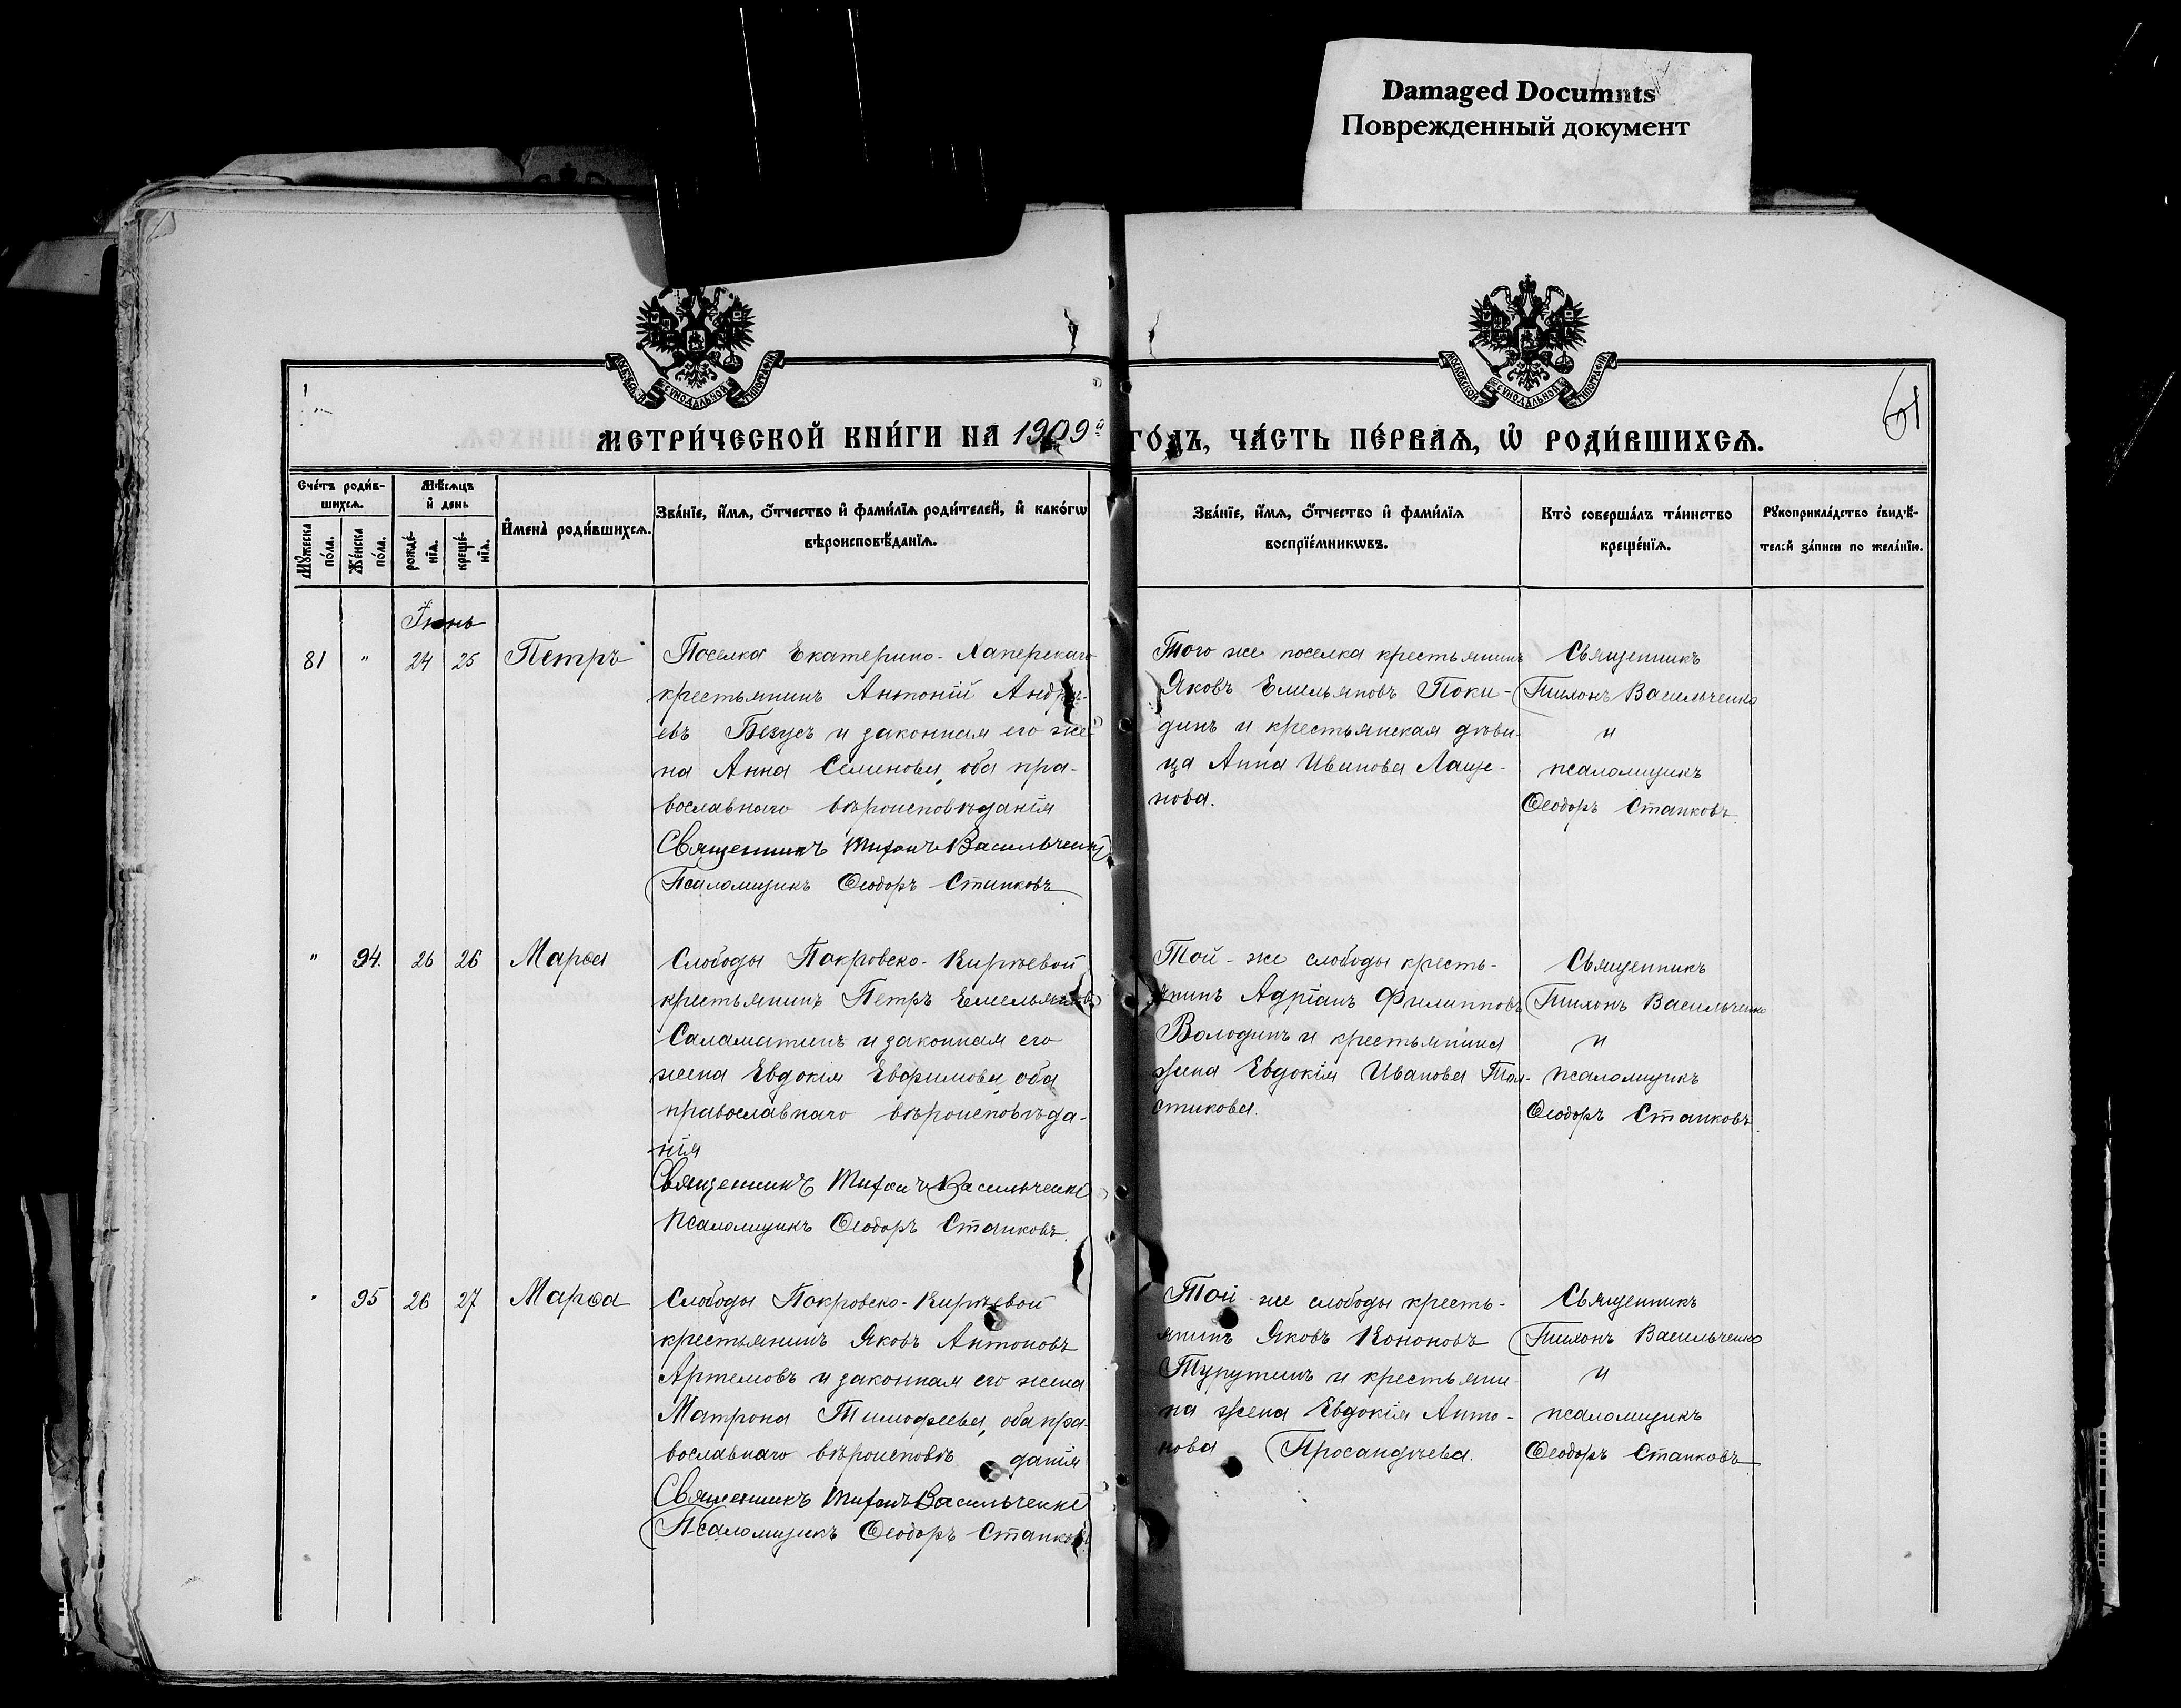 Damaged Documnts
Поврежденный документ
МОСКОВСКОЙ СѴНОДАЛЬНОЙ ТИПОГРАФІИ
МОСКОВСКОЙ СѴНОДАЛЬНОЙ ТИПОГРАФІИ
МЕТРИ́ЧЕСКОЙ КНИ́ГИ НА 1909 ГО́ДЪ, ЧА́СТЬ ПЕ́РВАѦ, Ѡ҆ РОДИ́ВШИХСѦ.
Сче́тъ роди́в-
шихсѧ.
Мꙋжеска по́ла.
Же́нска по́ла.
Мѣ́сѧцъ и҆ день
рожде́-нїѧ.
креще́-нїѧ.
И҆мена̀ роди́вшихсѧ.
Зва́нїе, и҆́мѧ, ѻ҆́тчество и҆ фами́лїѧ роди́телей, и҆ како́гѡ
вѣроисповѣ́данїѧ.
Зва́нїе, и҆́мѧ, ѻ҆́тчество и҆ фами́лїѧ
воспрїе́мникѡвъ.
Кто̀ соверша́лъ та́инство
креще́нїѧ.
Рꙋкоприкла́дство свидѣ́-
телей за́писи по жела́нїю.
Іюнь
81 " 24 25 Петръ
Поселка Екатерино-Хаперскаго
крестьянинъ Антоній Андре-
евъ Безусъ и законная его же-
на Анна Семенова, оба пра-
вославнаго вѣроисповѣданія
Священникъ Тихонъ Васильченко
Псаломщикъ Ѳеодоръ Станковъ
Того же поселка крестьянинъ
Яковъ Емельяновъ Поки-
динъ и крестьянская дѣви-
ца Анна Иванова Лаще-
нова.
Священникъ
Тихонъ Васильченко
и
псаломщикъ
Ѳеодоръ Станковъ
" 94. 26 26 Марѳа
Слободы Покровско-Кирѣевой
крестьянинъ Петръ Емельяновъ
Саламатинъ и законная его
жена Евдокія Евфимова, оба
православнаго вѣроисповѣда-
нія
Священникъ Тихонъ Васильченко
Псаломщикъ Ѳеодоръ Станковъ.
Той-же слободы кресть-
янинъ Адріанъ Филипповъ
Володинъ и крестьянина
жена Евдокія Иванова Тол-
стикова.
Священникъ
Тихонъ Васильченко
и
псаломщикъ
Ѳеодоръ Станковъ.
" 95 26 27 Марѳа
Слободы Покровско-Кирѣевой
крестьянинъ Яковъ Антоновъ
Артемовъ и законная его жена
Матрона Тимофеева, оба пра-
вославнаго вѣроисповѣданія
Священникъ Тихонъ Васильченко
Псаломщикъ Ѳеодоръ Станковъ.
Той-же слободы кресть-
янинъ Яковъ Кононовъ
Турутинъ и крестьяни-
на жена Евдокія Анто-
нова Просандѣева.
Священникъ
Тихонъ Васильченко
и
псаломщикъ
Ѳеодоръ Станковъ